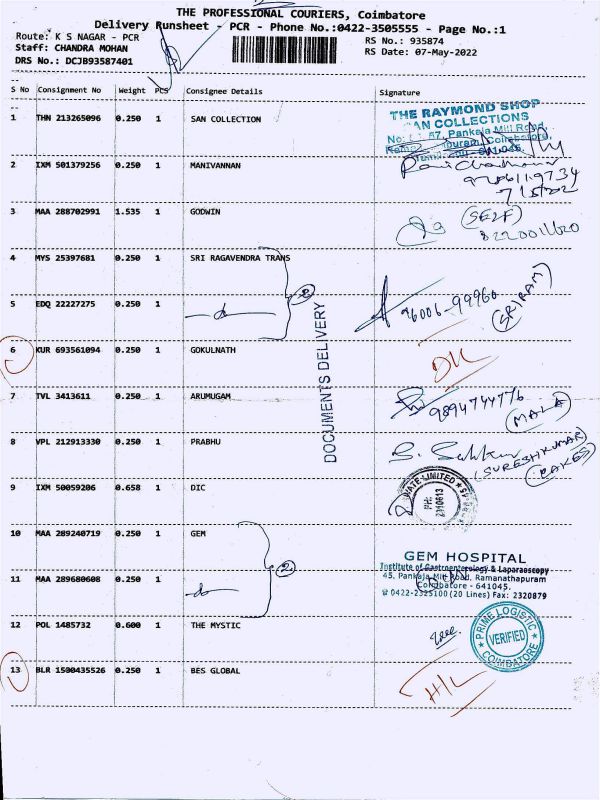 THE PROFESSIONAL COURIERS, Coimbatore
Delivery Runsheet - PCR - Phone No.:0422-3505555 - Page No.:1
Route: K S NAGAR - PCR
RS No.: 935874
Staff: CHANDRA MOHAN
RS Date: 07-May-2022
DRS No.: DCJB93587401
S No Consignment No Weight PCS Consignee Details Signature
1 THN 213265096 0.250 1 SAN COLLECTION
THE RAYMOND SHOP
SAN COLLECTIONS
57, Pankaja Mill Road,
2 IXM 501379256 0.250 1 MANIVANNAN
9786119734
7/5/22
3 MAA 288702991 1.535 1 GODWIN
(SELF)
8220011620
4 MYS 25397681 0.250 1 SRI RAGAVENDRA TRANS
2
5 EDQ 22227275 0.250 1 -do-
96006-99960
(SRIRAM)
DOCUMENTS DELIVERY
6 KUR 693561094 0.250 1 GOKULNATH
DL
7 TVL 3413611 0.250 1 ARUMUGAM
9894744776
(MALA)
8 VPL 212913330 0.250 1 PRABHU
(SURESHKUMAR)
(CAKES)
9 IXM 50059206 0.658 1 DIC
VATE LIMITED
PH:
2310613
10 MAA 289240719 0.250 1 GEM
2
11 MAA 289680608 0.250 1 -do-
GEM HOSPITAL
Institute of Gastroenterology & Laparoscopy
45, Pankaja Mill Road, Ramanathapuram
Coimbatore - 641045.
☎ 0422-2325100 (20 Lines) Fax: 2320879
12 POL 1485732 0.600 1 THE MYSTIC
PRIME LOGISTIC
VERIFIED
COIMBATORE
13 BLR 1500435526 0.250 1 BES GLOBAL
H/L